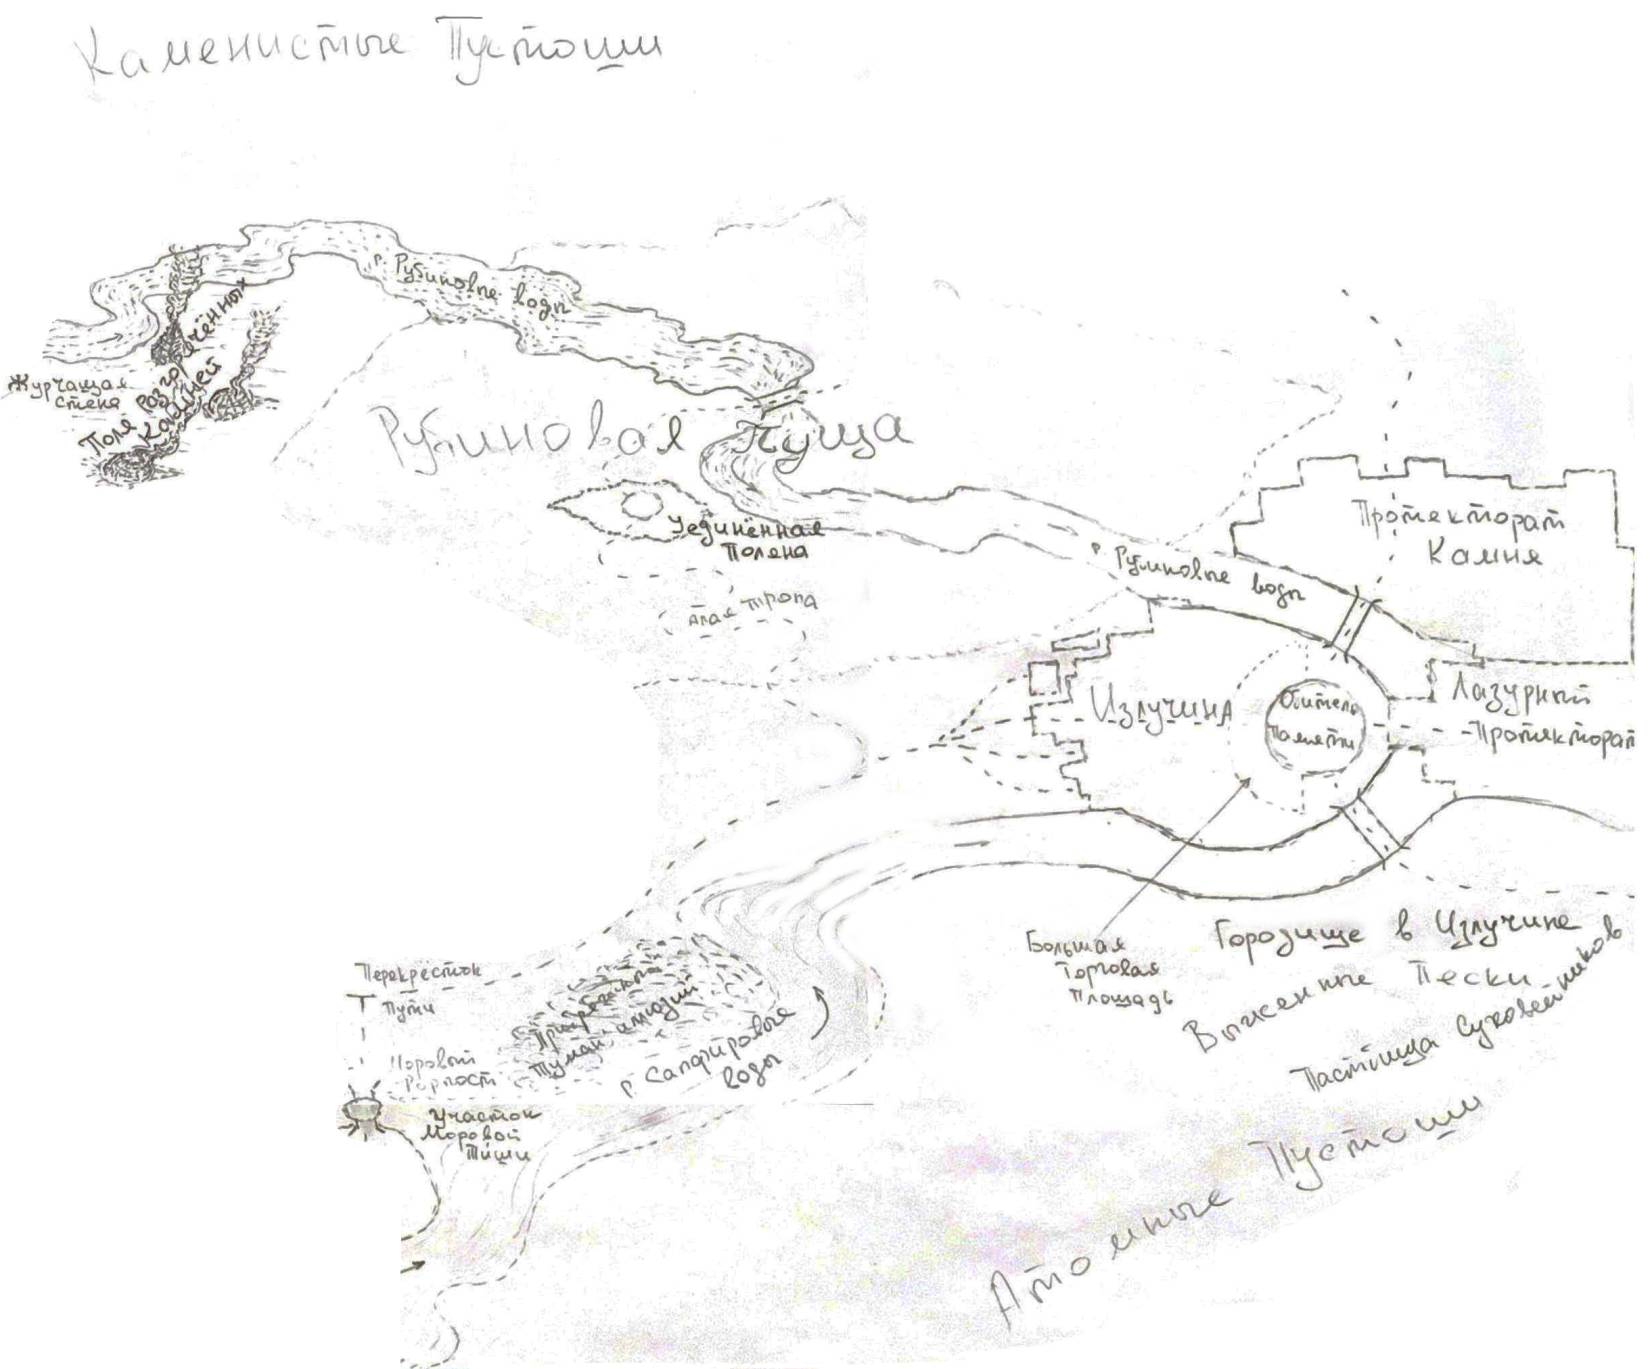 Каменистые Пустоши
р. Рубиновые воды
Журчащая
стена
Поля разгорячённых
Камней
Рубиновая Пуща
Уединённая
Поляна
Алая тропа
р. Рубиновые воды
Протекторат
Камня
Излучина
Обитель
Памяти
Лазурный
Протекторат
Большая
Торговая
Площадь
Городище в Излучине
Выжженные Пески
Пастбища Суховейников
Атомные Пустоши
Перекрёсток
Пути
Туман иллюзий
р. Сапфировые
воды
Моровой
Форпост
Участок
Моровой
Тиши